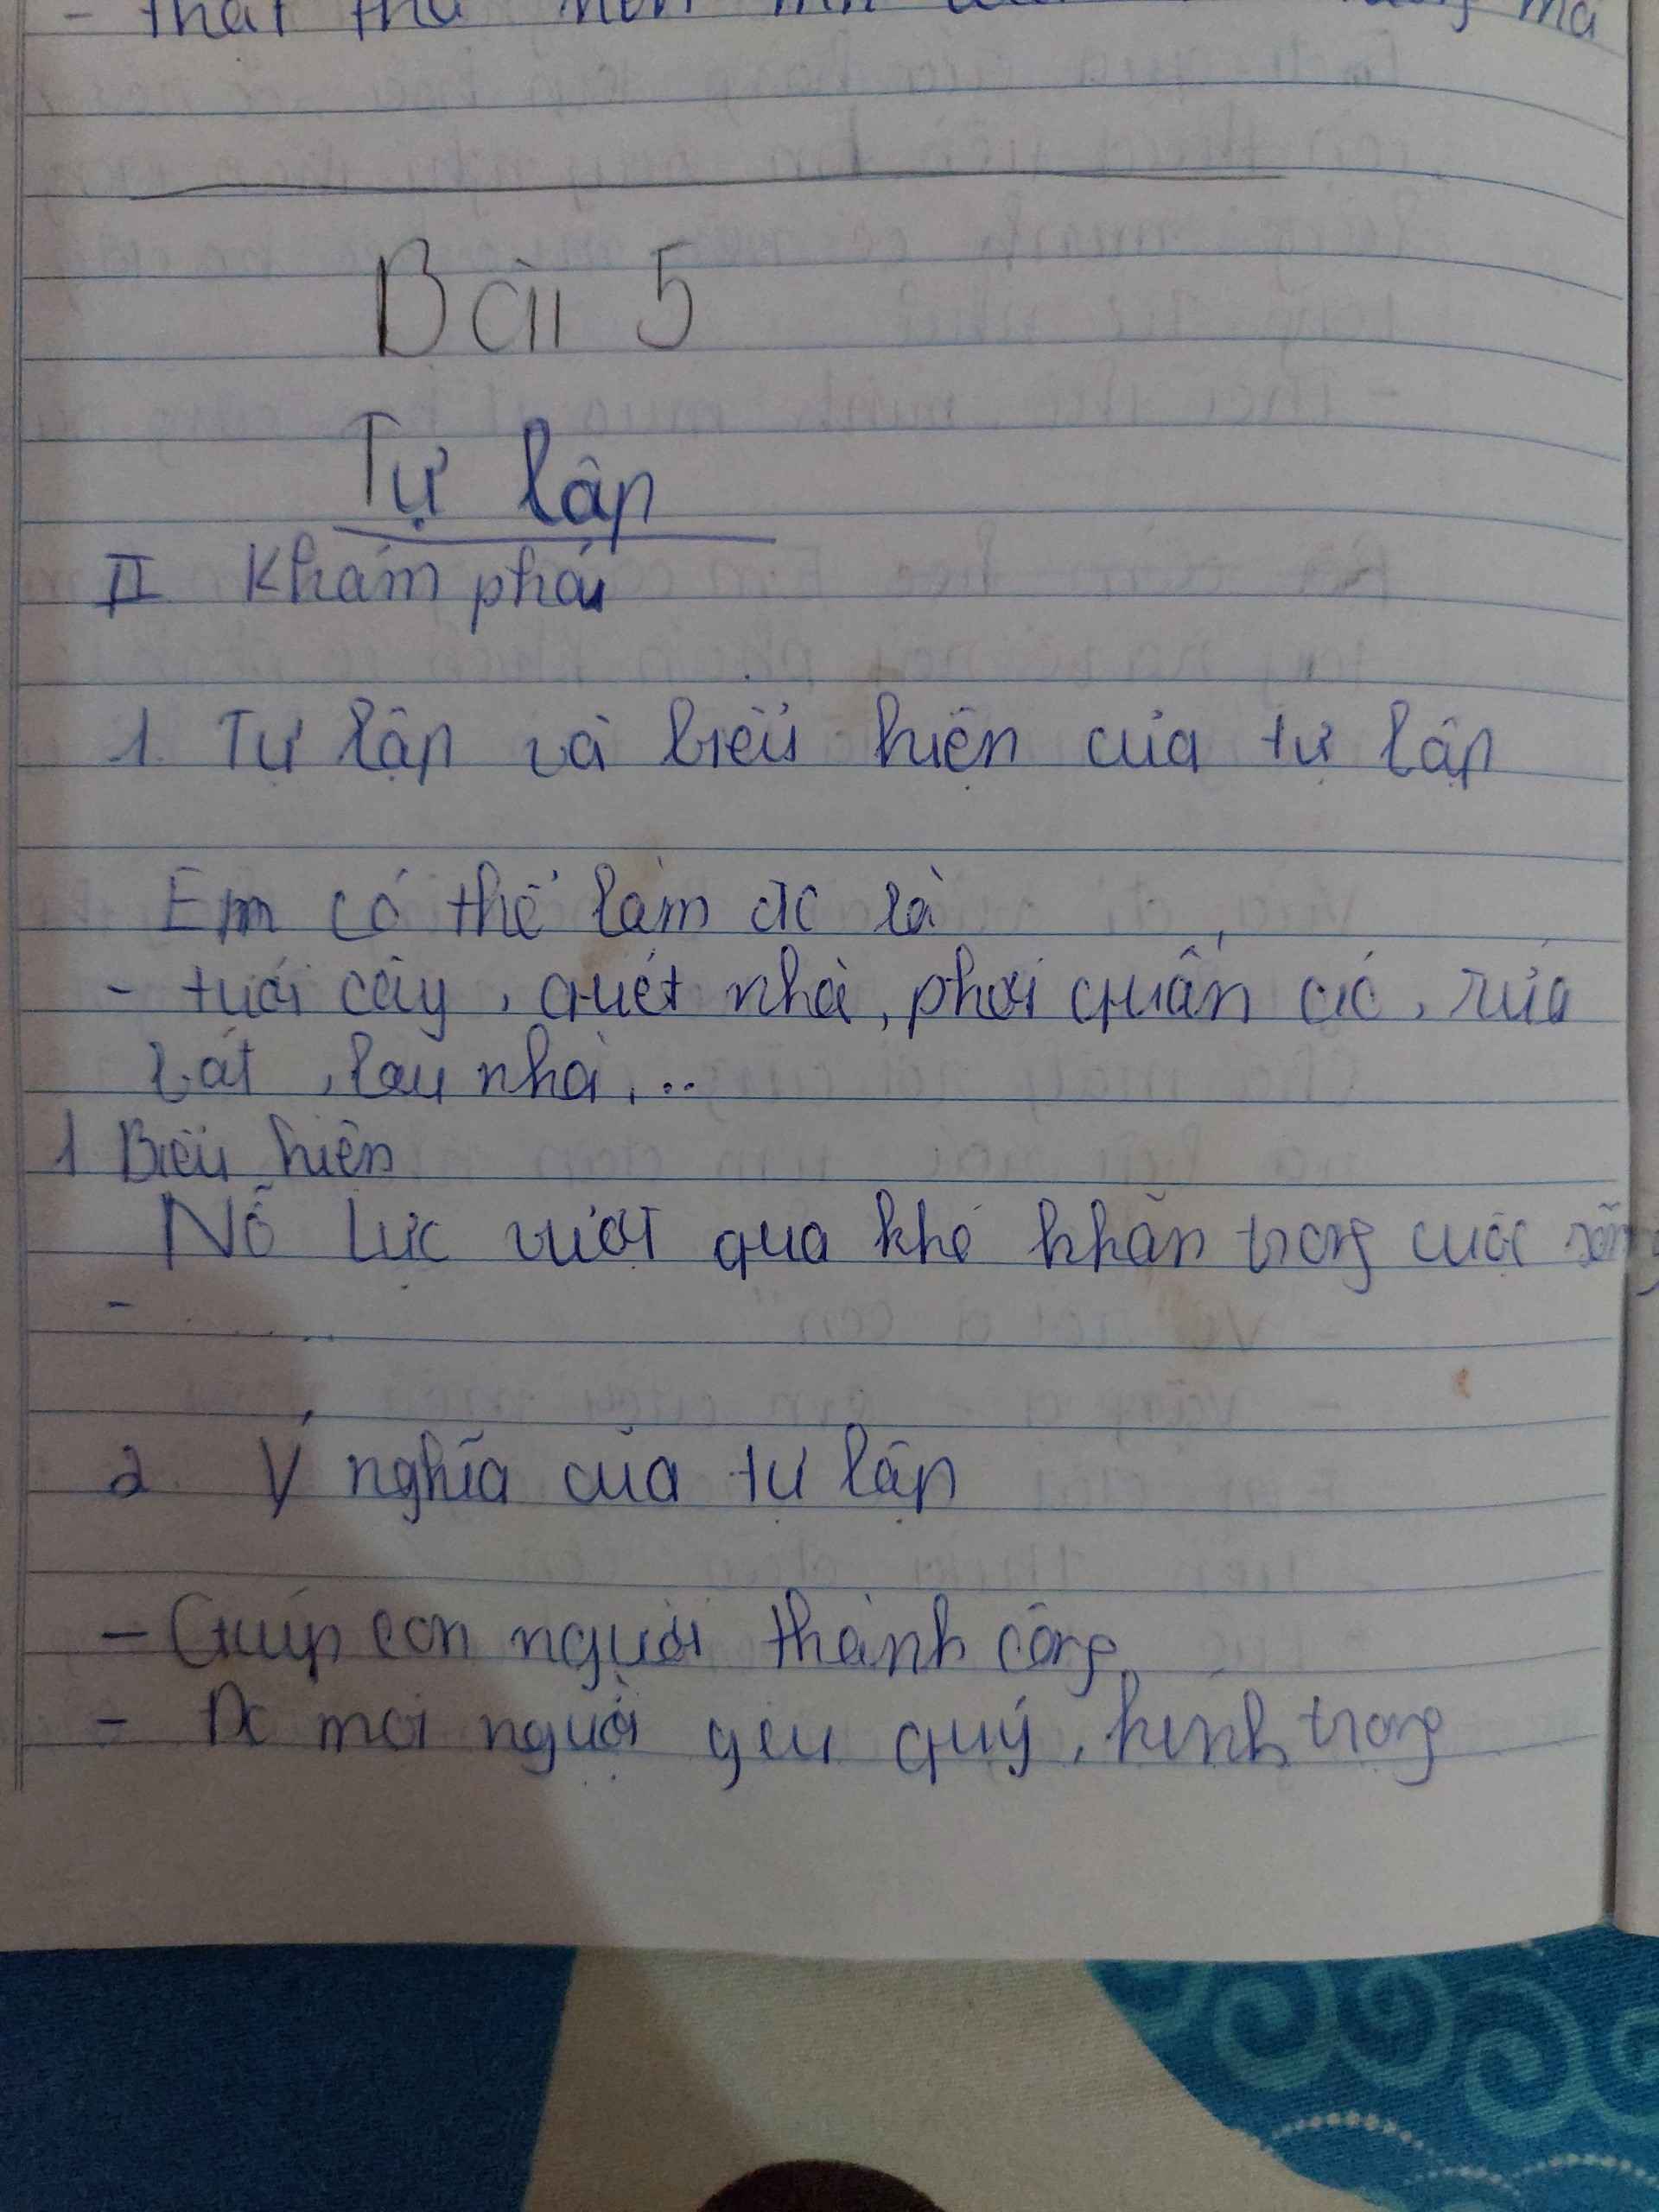 - thật thà hơn
Bài 5
Tự lập
II Khám phá
1. Tự lập và biểu hiện của tự lập
Em có thể làm đc là
- tưới cây, quét nhà, phơi quần áo, rửa
bát, lau nhà, ..
1 Biểu hiện
Nỗ lực vượt qua khó khăn trong cuộc sống
- .....
2. Ý nghĩa của tự lập
- Giúp con người thành công
- Đc mọi người yêu quý, kính trọng